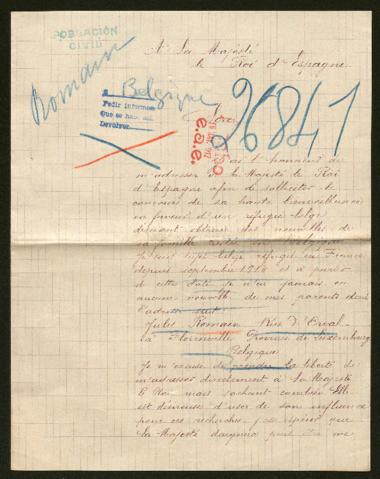 POBLACIÓN
CIVIL
Romain
A Sa Majesté
le Roi d'Espagne
Belgique
Pedir informes
Que se hace así.
Devolver.
26841
e.a.e.
J'ai l'honneur de
m'adresser à Sa Majesté le Roi
d'Espagne afin de solliciter le
concours de sa haute bienveillance
en faveur d'un réfugié belge
désirant obtenir des nouvelles de
sa famille restée en Belgique
Je suis sujet belge réfugié en France
depuis septembre 1914 et à partir
de cette date je n'ai jamais eu
aucune nouvelle de mes parents dont
l'adresse suit
Jules Romain Rue d'Orval
La Florenville Province de Luxembourg
Belgique
Je m'excuse de prendre la liberté de
m'adresser directement à Sa Majesté
le Roi mais sachant combien Elle
est désireuse d'user de son influence
pour ces recherches j'ose espérer que
Sa Majesté daignera peut être me